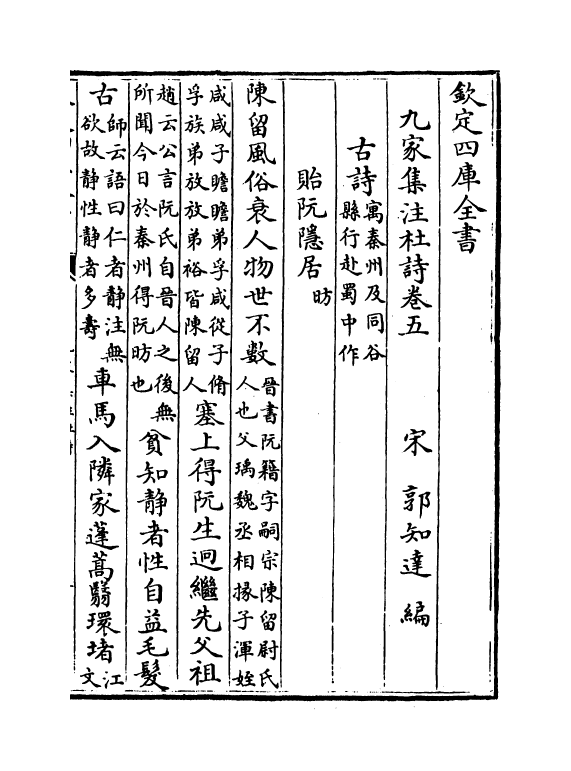 欽定四庫全書
九家集注杜詩卷五　宋　郭知達　編
古詩寓秦州及同谷
縣行赴蜀中作
貽阮隱居昉
陳留風俗衰人物世不數晉書阮籍字嗣宗陳留尉氏
人也父瑀魏丞相掾子渾姪
咸咸子瞻瞻弟孚咸從子脩
孚族弟放放弟裕皆陳留人塞上得阮生迥繼先父祖
趙云公言阮氏自晉人之後無
所聞今日於秦州得阮昉也貧知静者性自益毛髮
古師云語曰仁者静注無
欲故静性静者多壽車馬入隣家蓬蒿翳環堵江
文